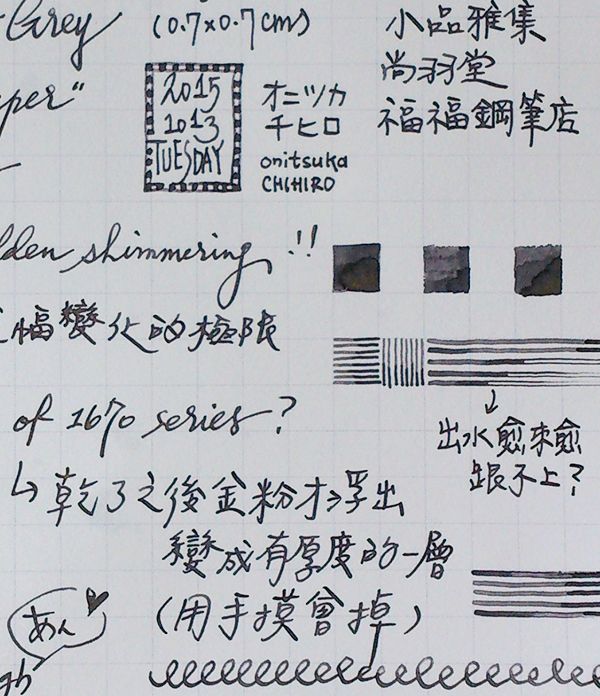 Grey
(0.7×0.7cm)
小品雅集
尚羽堂
福福鋼筆店
per"
2015
10 13
TUESDAY
オニツカ
チヒロ
onitsuka
CHIHIRO
lden shimmering !!
幅變化的極限
of 1670 series?
出水愈來愈
跟不上?
↳乾了之後金粉才浮出
變成有厚度的一層
(用手摸會掉)
あん♥
gh